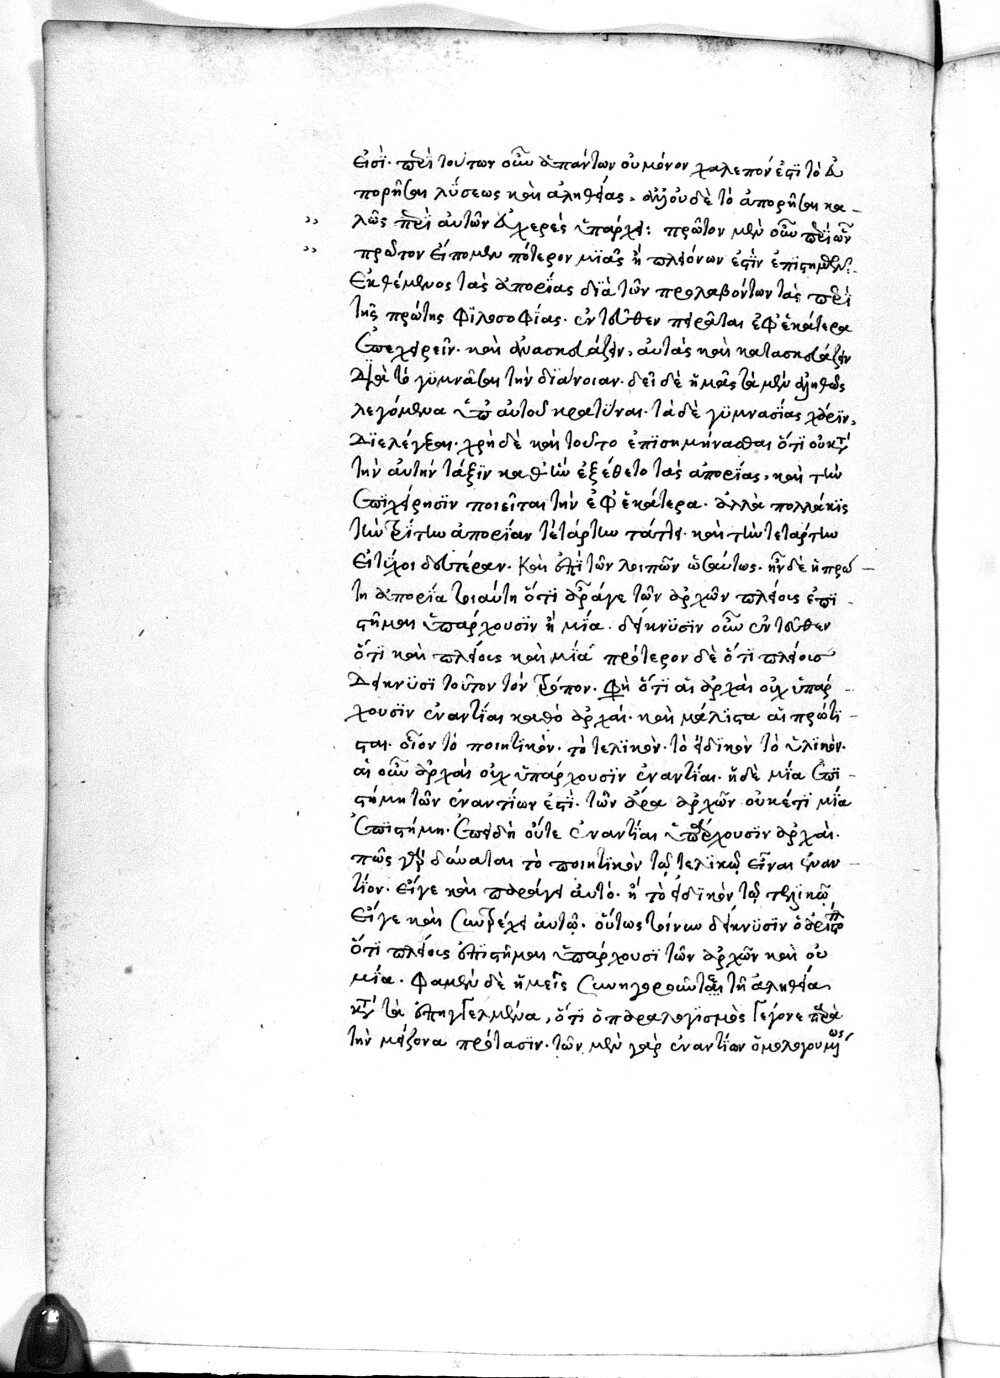 εἰσί· περὶ τούτων οὖν ἁπάντων οὐ μόνον χαλεπόν ἐστι τὸ εὐ
πορῆσαι λύσεως καὶ ἀληθείας, ἀλλ' οὐδὲ τὸ ἀπορῆσαι κα-
λῶς περὶ αὐτῶν εὐχερές ὑπάρχει: πρῶτον μὲν οὖν περὶ ὧν
πρῶτον εἴπομεν πότερον μιᾶς ἢ πλειόνων ἐστὶν ἐπιστημῶν·
Ἐκθέμενος τὰς ἀπορίας διὰ τῶν προλαβόντων τὰς περὶ
τῆς πρώτης φιλοσοφίας· ἐντεῦθεν πειρᾶται ἐφ' ἑκάτερα
ἐπιχειρεῖν· καὶ ἀνασκευάζειν, αὐτὰς καὶ κατασκευάζειν
διὰ τὸ γυμνᾶσαι τὴν διάνοιαν· δεῖ δὲ ἡμᾶς τὰ μὲν ἀληθῶς
λεγόμενα ὑπ' αὐτοῦ κρατῦναι· τὰ δὲ γυμνασίας χάριν,
διελέγξαι· χρὴ δὲ καὶ τοῦτο ἐπισημήνασθαι ὅτι οὐ κατὰ
τὴν αὐτὴν τάξιν καθ' ἣν ἐξέθετο τὰς ἀπορίας, καὶ τὴν
ἐπιχείρησιν ποιεῖται τὴν ἐφ' ἑκάτερα· ἀλλὰ πολλάκις
τὴν τρίτην ἀπορίαν τετάρτην τάττει· καὶ τὴν τετάρτην
εἰ τύχοι δευτέραν· καὶ ἐπὶ τῶν λοιπῶν ὡσαύτως· ἦν δὲ ἡ πρώ-
τη ἀπορία τοιαύτη ὅτι ἆρά γε τῶν ἀρχῶν πλείους ἐπι-
στῆμαι ὑπάρχουσιν ἢ μία· δείκνυσιν οὖν ἐντεῦθεν
ὅτι καὶ πλείους καὶ μία πρότερον δὲ ὅτι πλείους
δείκνυσι τοῦτον τὸν τρόπον· φησὶ ὅτι αἱ ἀρχαὶ οὐχ ὑπάρ-
χουσιν ἐναντίαι καθὸ ἀρχαί· καὶ μάλιστα αἱ πρώτι-
σται· οἷον τὸ ποιητικὸν· τὸ τελικὸν· τὸ εἰδικὸν τὸ ὑλικὸν·
αἱ οὖν ἀρχαὶ οὐχ ὑπάρχουσιν ἐναντίαι· ἡ δὲ μία ἐπι-
στήμη τῶν ἐναντίων ἐστί· τῶν ἄρα ἀρχῶν οὐκέτι μία
ἐπιστήμη· ἐπειδὴ οὔτε ἐναντίαι ὑπάρχουσιν ἀρχαὶ·
πῶς γὰρ δύναται τὸ ποιητικὸν τῷ τελικῷ εἶναι ἐναν-
τίον· εἴγε καὶ παράγει αὐτό· ἢ τὸ εἰδικὸν τῷ τελικῷ,
εἴγε καὶ συντρέχει αὐτῷ· οὕτως τοίνυν δείκνυσιν
ὅτι πλείους ἐπιστῆμαι ὑπάρχουσι τῶν ἀρχῶν καὶ οὐ
μία· φαμὲν δὲ ἡμεῖς συνηγοροῦντες τῇ ἀληθείᾳ
κατὰ τὰ ἐπηγγελμένα, ὅτι ὁ παραλογισμὸς γέγονε παρὰ
τὴν μείζονα πρότασιν· τῶν μὲν γὰρ ἐναντίων ὁμολογουμένως